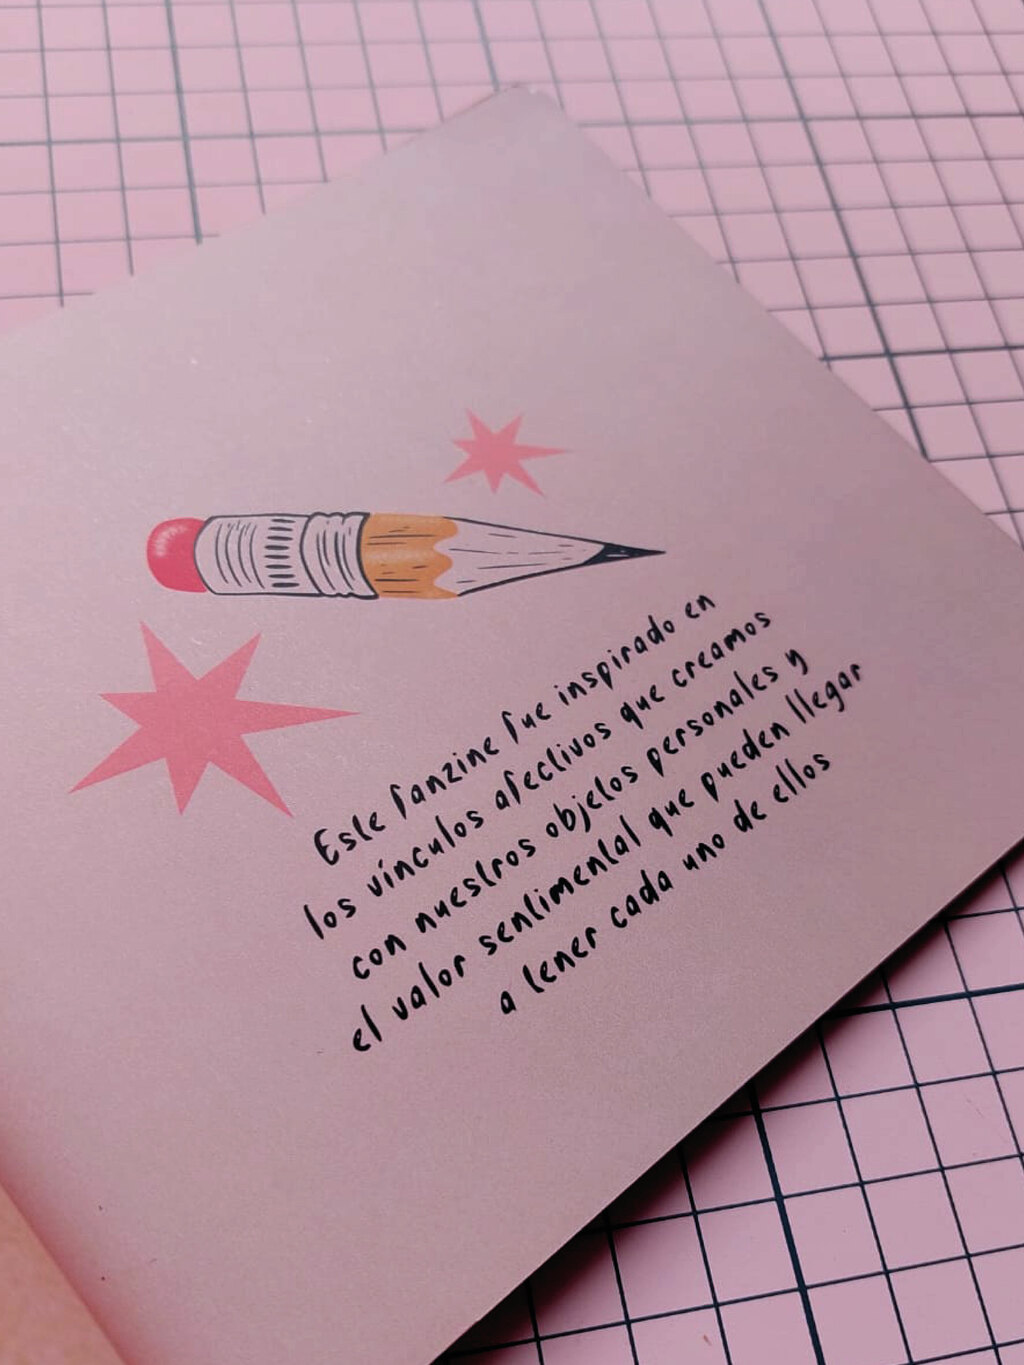 Este fanzine fue inspirado en
los vínculos afectivos que creamos
con nuestros objetos personales y
el valor sentimental que pueden llegar
a tener cada uno de ellos